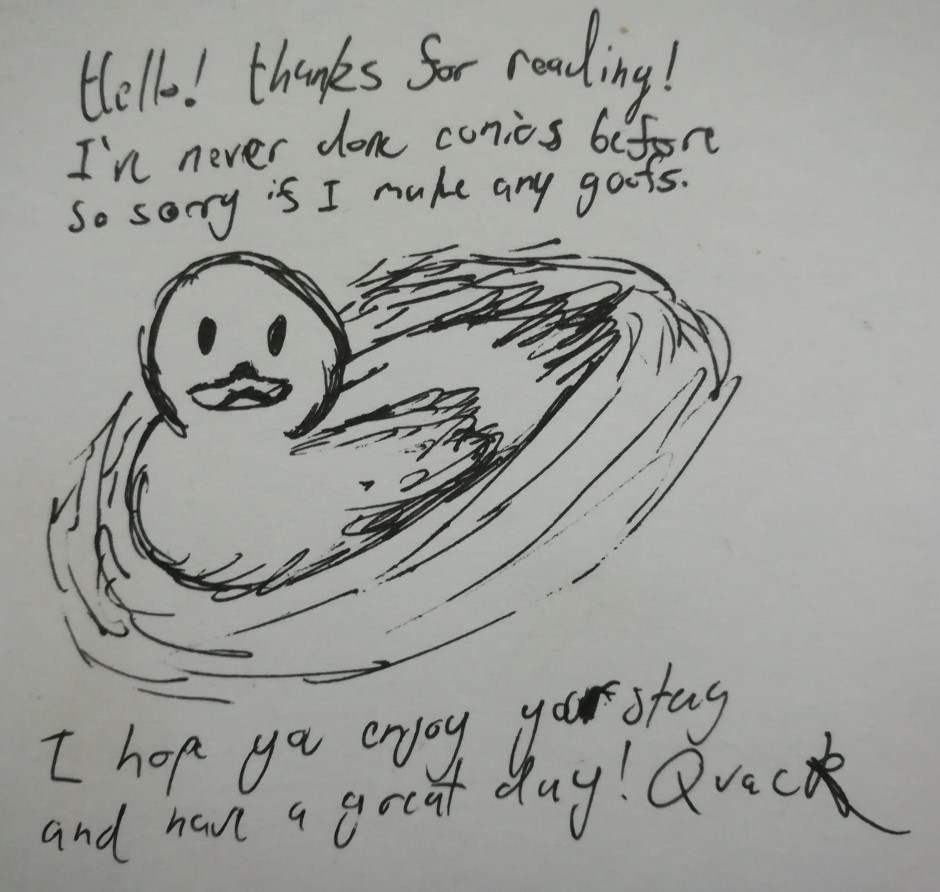 Hello! thanks for reading!
I've never done comics before
so sorry if I make any goofs.
I hope you enjoy your stay
and have a great day! Quack